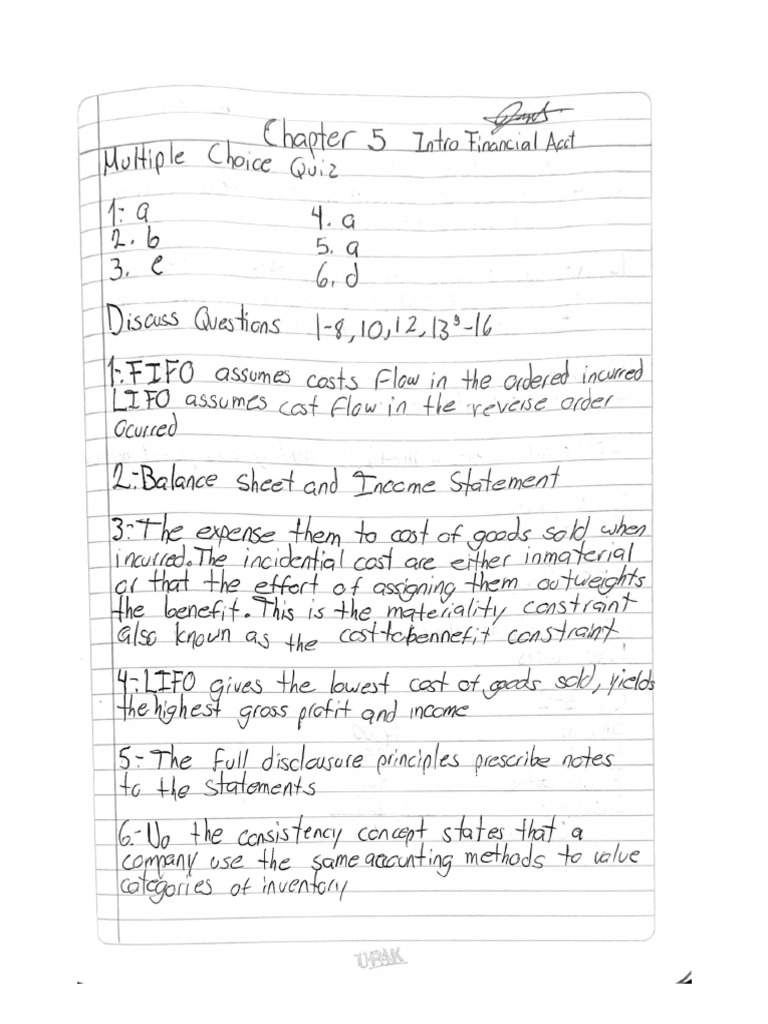 Chapter 5 Intro Financial Acct
Multiple Choice Quiz
1: a 4. a
2. b 5. a
3. e 6. d
Discuss Questions 1-8, 10, 12, 13⁹-16
1:. FIFO assumes costs flow in the ordered incurred
LIFO assumes cost flow in the reverse order
ocurred
2:- Balance sheet and Income Statement
3:- The expense them to cost of goods sold when
incurred. The incidential cost are either inmaterial
or that the effort of assigning them outweights
the benefit. This is the materiality constraint
also known as the cost to bennefit constraint
4:- LIFO gives the lowest cost of goods sold, yields
the highest gross profit and income
5:- The full disclousure principles prescribe notes
to the statements
6.- No the consistency concept states that a
company use the same accounting methods to value
categories of inventory
U-PAK